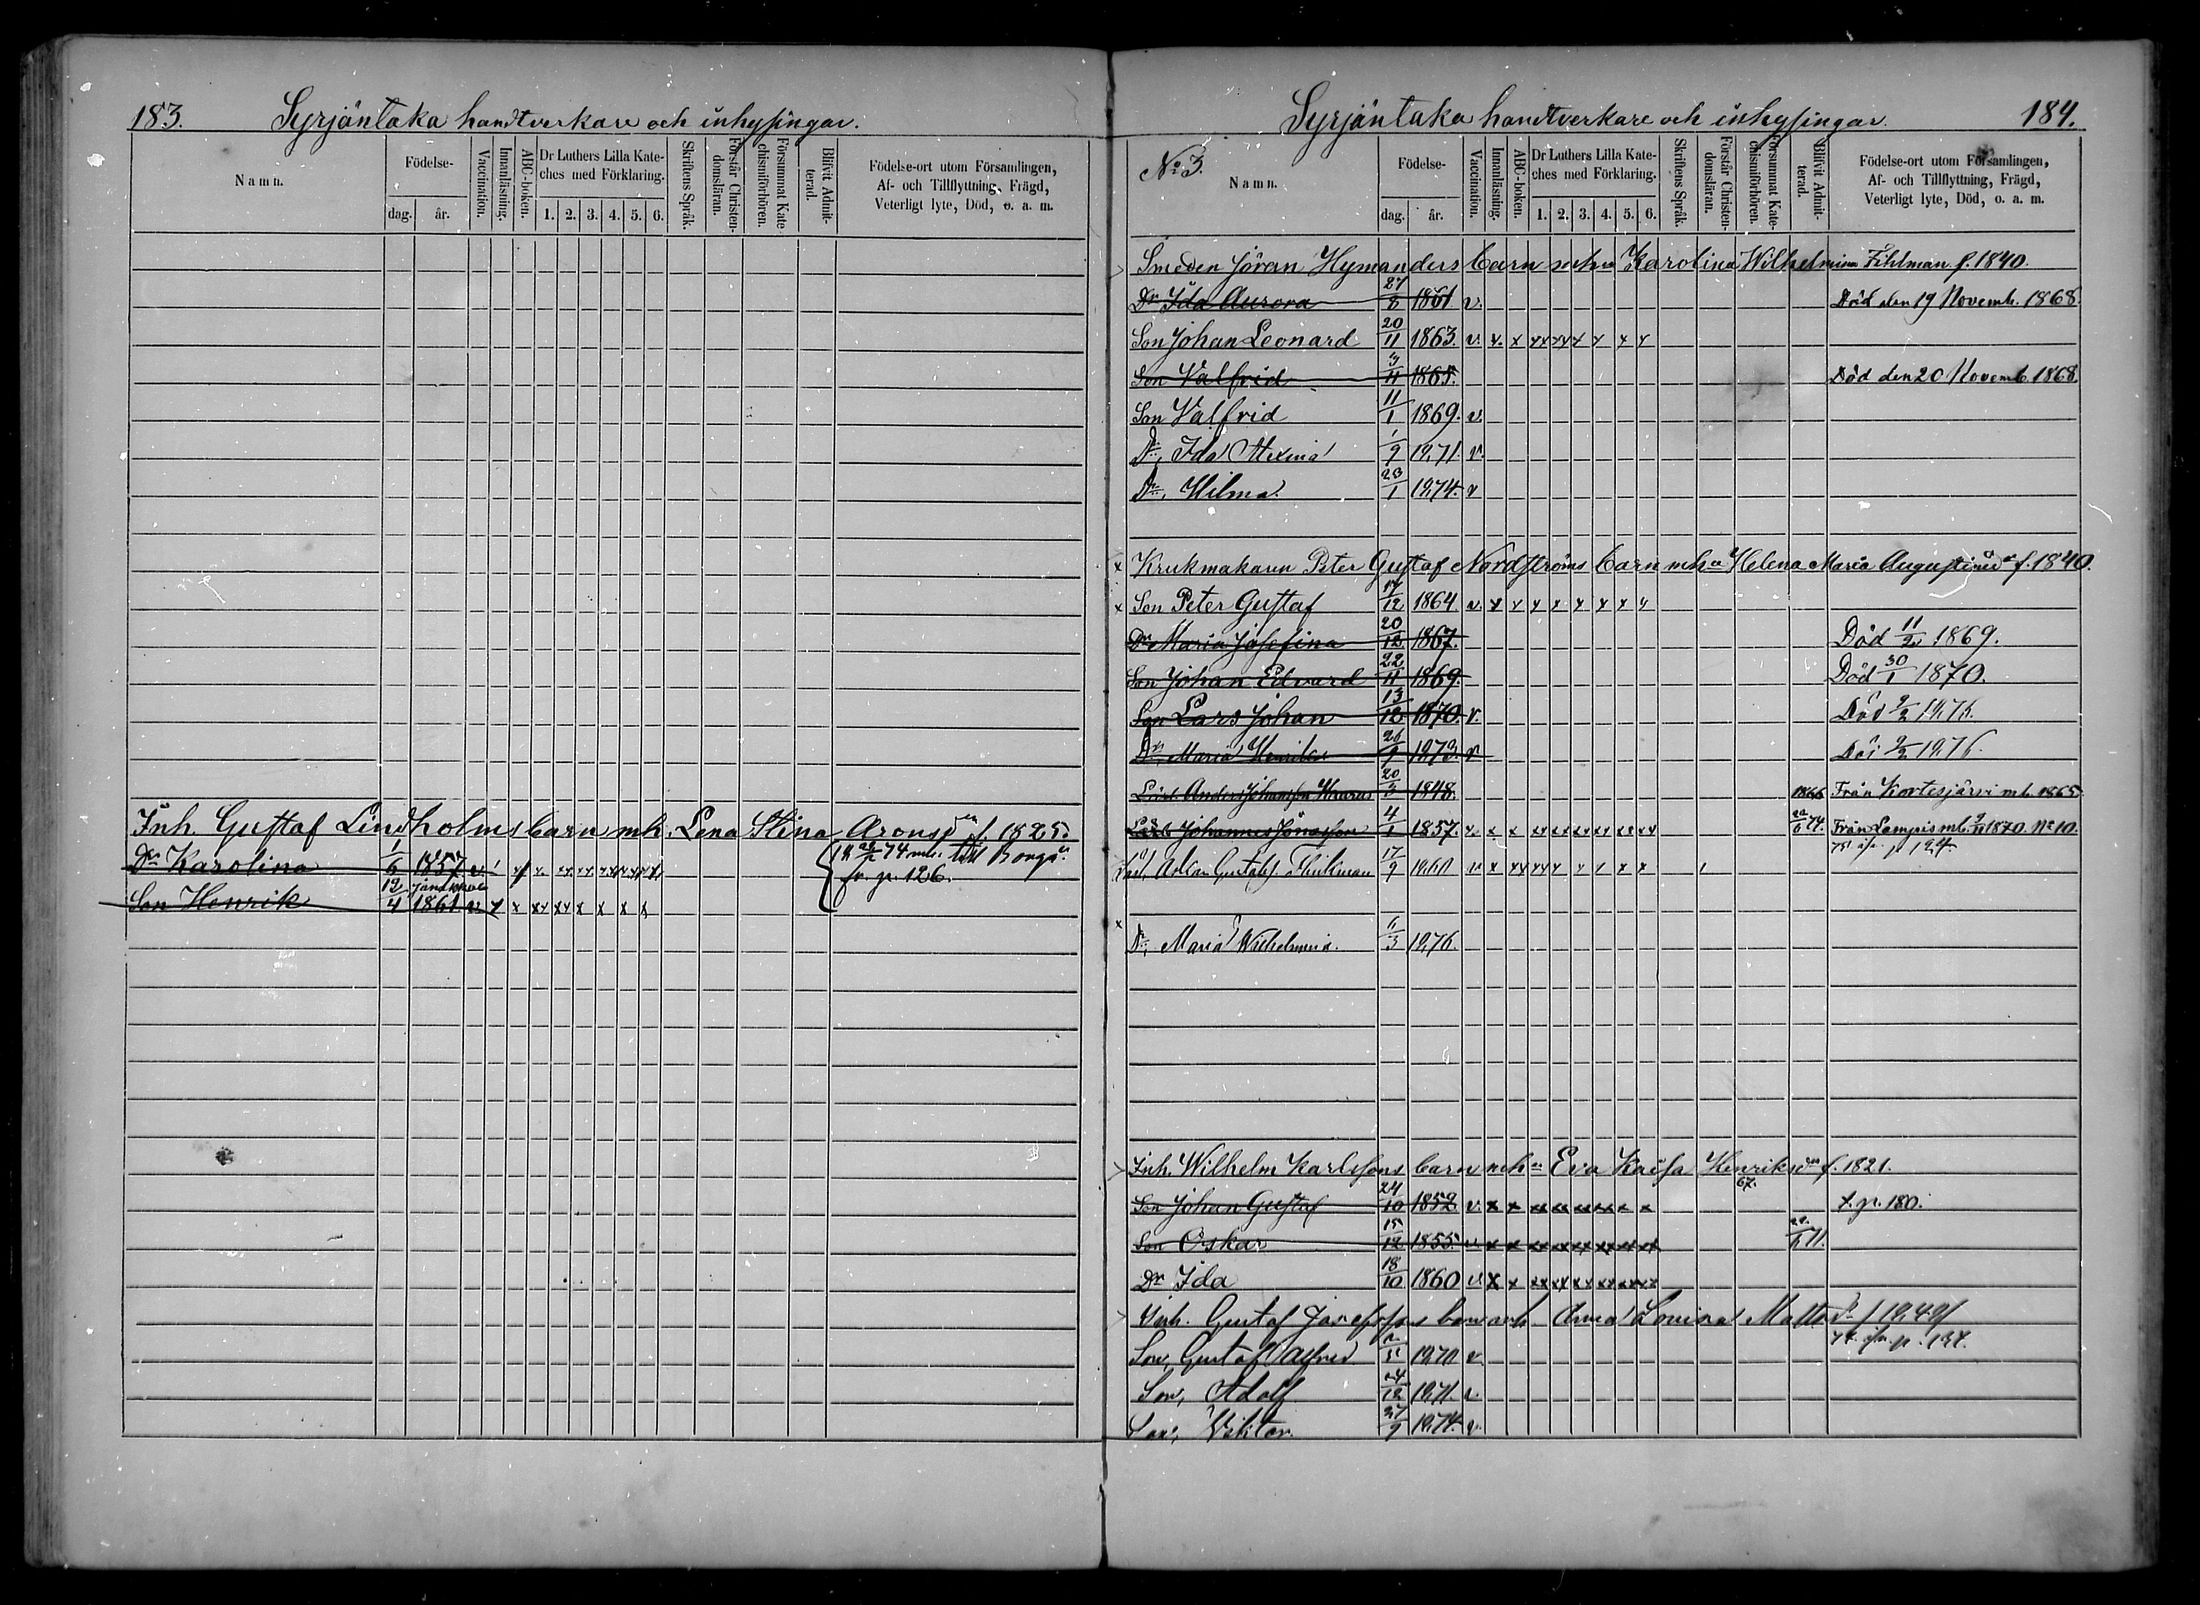 183. Syrjäntaka handtverkare och inhysingar.
Namn. Födelse- dag. år. Vaccination. Innanläsning. ABC-boken. Dr Luthers Lilla Kate-ches med Förklaring. 1. 2. 3. 4. 5. 6. Skriftens Språk. Förstår Christen-domsläran. Försummat Kate-chismiförhören. Blifvit Admit-terad. Födelse-ort utom Församlingen,
Af- och Tillflyttning, Frägd,
Veterligt lyte, Död, o. a. m.
Inh. Gustaf Lindholms barn mh. Lena Stina Aronsdr f. 1825.
Dr Karolina 1/6 1857 v. till Borgå
fr. p. 126.
Son Henrik 12/4 1861 v.
Syrjäntaka handtverkare och inhysingar. 184.
No 3. Namn. Födelse- dag. år. Vaccination. Innanläsning. ABC-boken. Dr Luthers Lilla Kate-ches med Förklaring. 1. 2. 3. 4. 5. 6. Skriftens Språk. Förstår Christen-domsläran. Försummat Kate-chismiförhören. Blifvit Admit-terad. Födelse-ort utom Församlingen,
Af- och Tillflyttning, Frägd,
Veterligt lyte, Död, o. a. m.
Smeden Jöran Hymanders barn Karolina Wilhelmina Fihlman f. 1840.
Dr Ida Aurora 27/8 1861 v. Död den 19 Novemb. 1868.
Son Johan Leonard 20/11 1863. v. x. x xx xx x x x x
Son Valfrid 3/11 1865. Död den 20 Novemb. 1868.
Son Valfrid 11/1 1869. v.
Dr, Ida 1/9 1871. v.
Dr, Wilma. 23/1 1874. v
x Krukmakaren Peter Gustaf Nordströms barn mh Helena Maria Augustinsdr f. 1840.
x Son Peter Gustaf 17/12 1864. v. x x x x x x x x
Dr Maria Josefina 20/12 1867. Död 11/2 1869.
Son Johan Edvard 22/11 1869. Död 30/1 1870.
Son Lars Johan 13/12 1870. v. Död 9/2 1876.
Dr, Maria Henrika 26/9 1873. v Död 9/2 1876.
Lärl. Anders Johansson 20/3 1848. 1866 Från Kortesjärvi mb. 1865.
Lärl. Johannes Jönasson 4/1 1857. v. x x xx xx xx xx xx xx Från Lampis mb. 1870. No 10.
Gustafs. 17/9 v x xx xx x x x x x
x Dr, Maria Wilhelmina. 6/3 1876.
Inh. Wilhelm Karlssons barn mh Eva Kaisa Henriksdr f. 1821.
Son Johan Gustaf 24/10 1852 v. x x xx xx xx x x 67. t. p. 180.
Son Oskar 15/12 1855. v. x x xx xx xx xx xx xx 71.
Dr Ida 18/10 1860 v. x x xx xx xx xx xx xx
Inh. Gustaf Josefssons barn mh Anna Lovisa Mattsdr f 1849
p. 134.
Son, Gustaf Valfrid 1870 v
Son, Adolf 24/12 1871. v.
Son, Viktor. 27/9 1874. v.